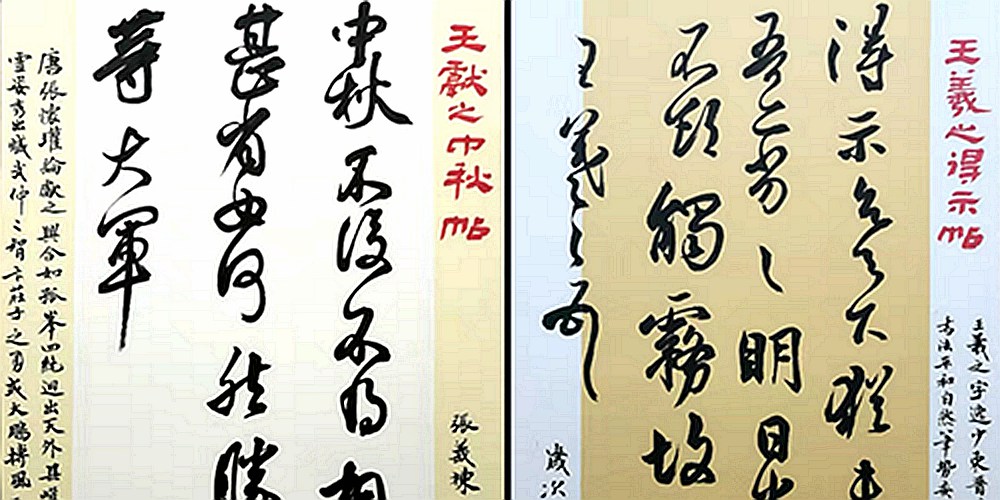 王獻之中秋帖
中秋不復不得相
甚省如何然勝
等大軍
唐張懷瓘論獻之興合如孤峯四絕迥出天外其峻
靈姿秀出臧武仲之智卞莊子之勇或大鵬搏風
張義棟
王羲之得示帖
得示知足下猶未
吾亦劣劣明日出
不欲觸霧故
王羲之頓首
王羲之字逸少東晉
古法平和自然筆勢委
歲次